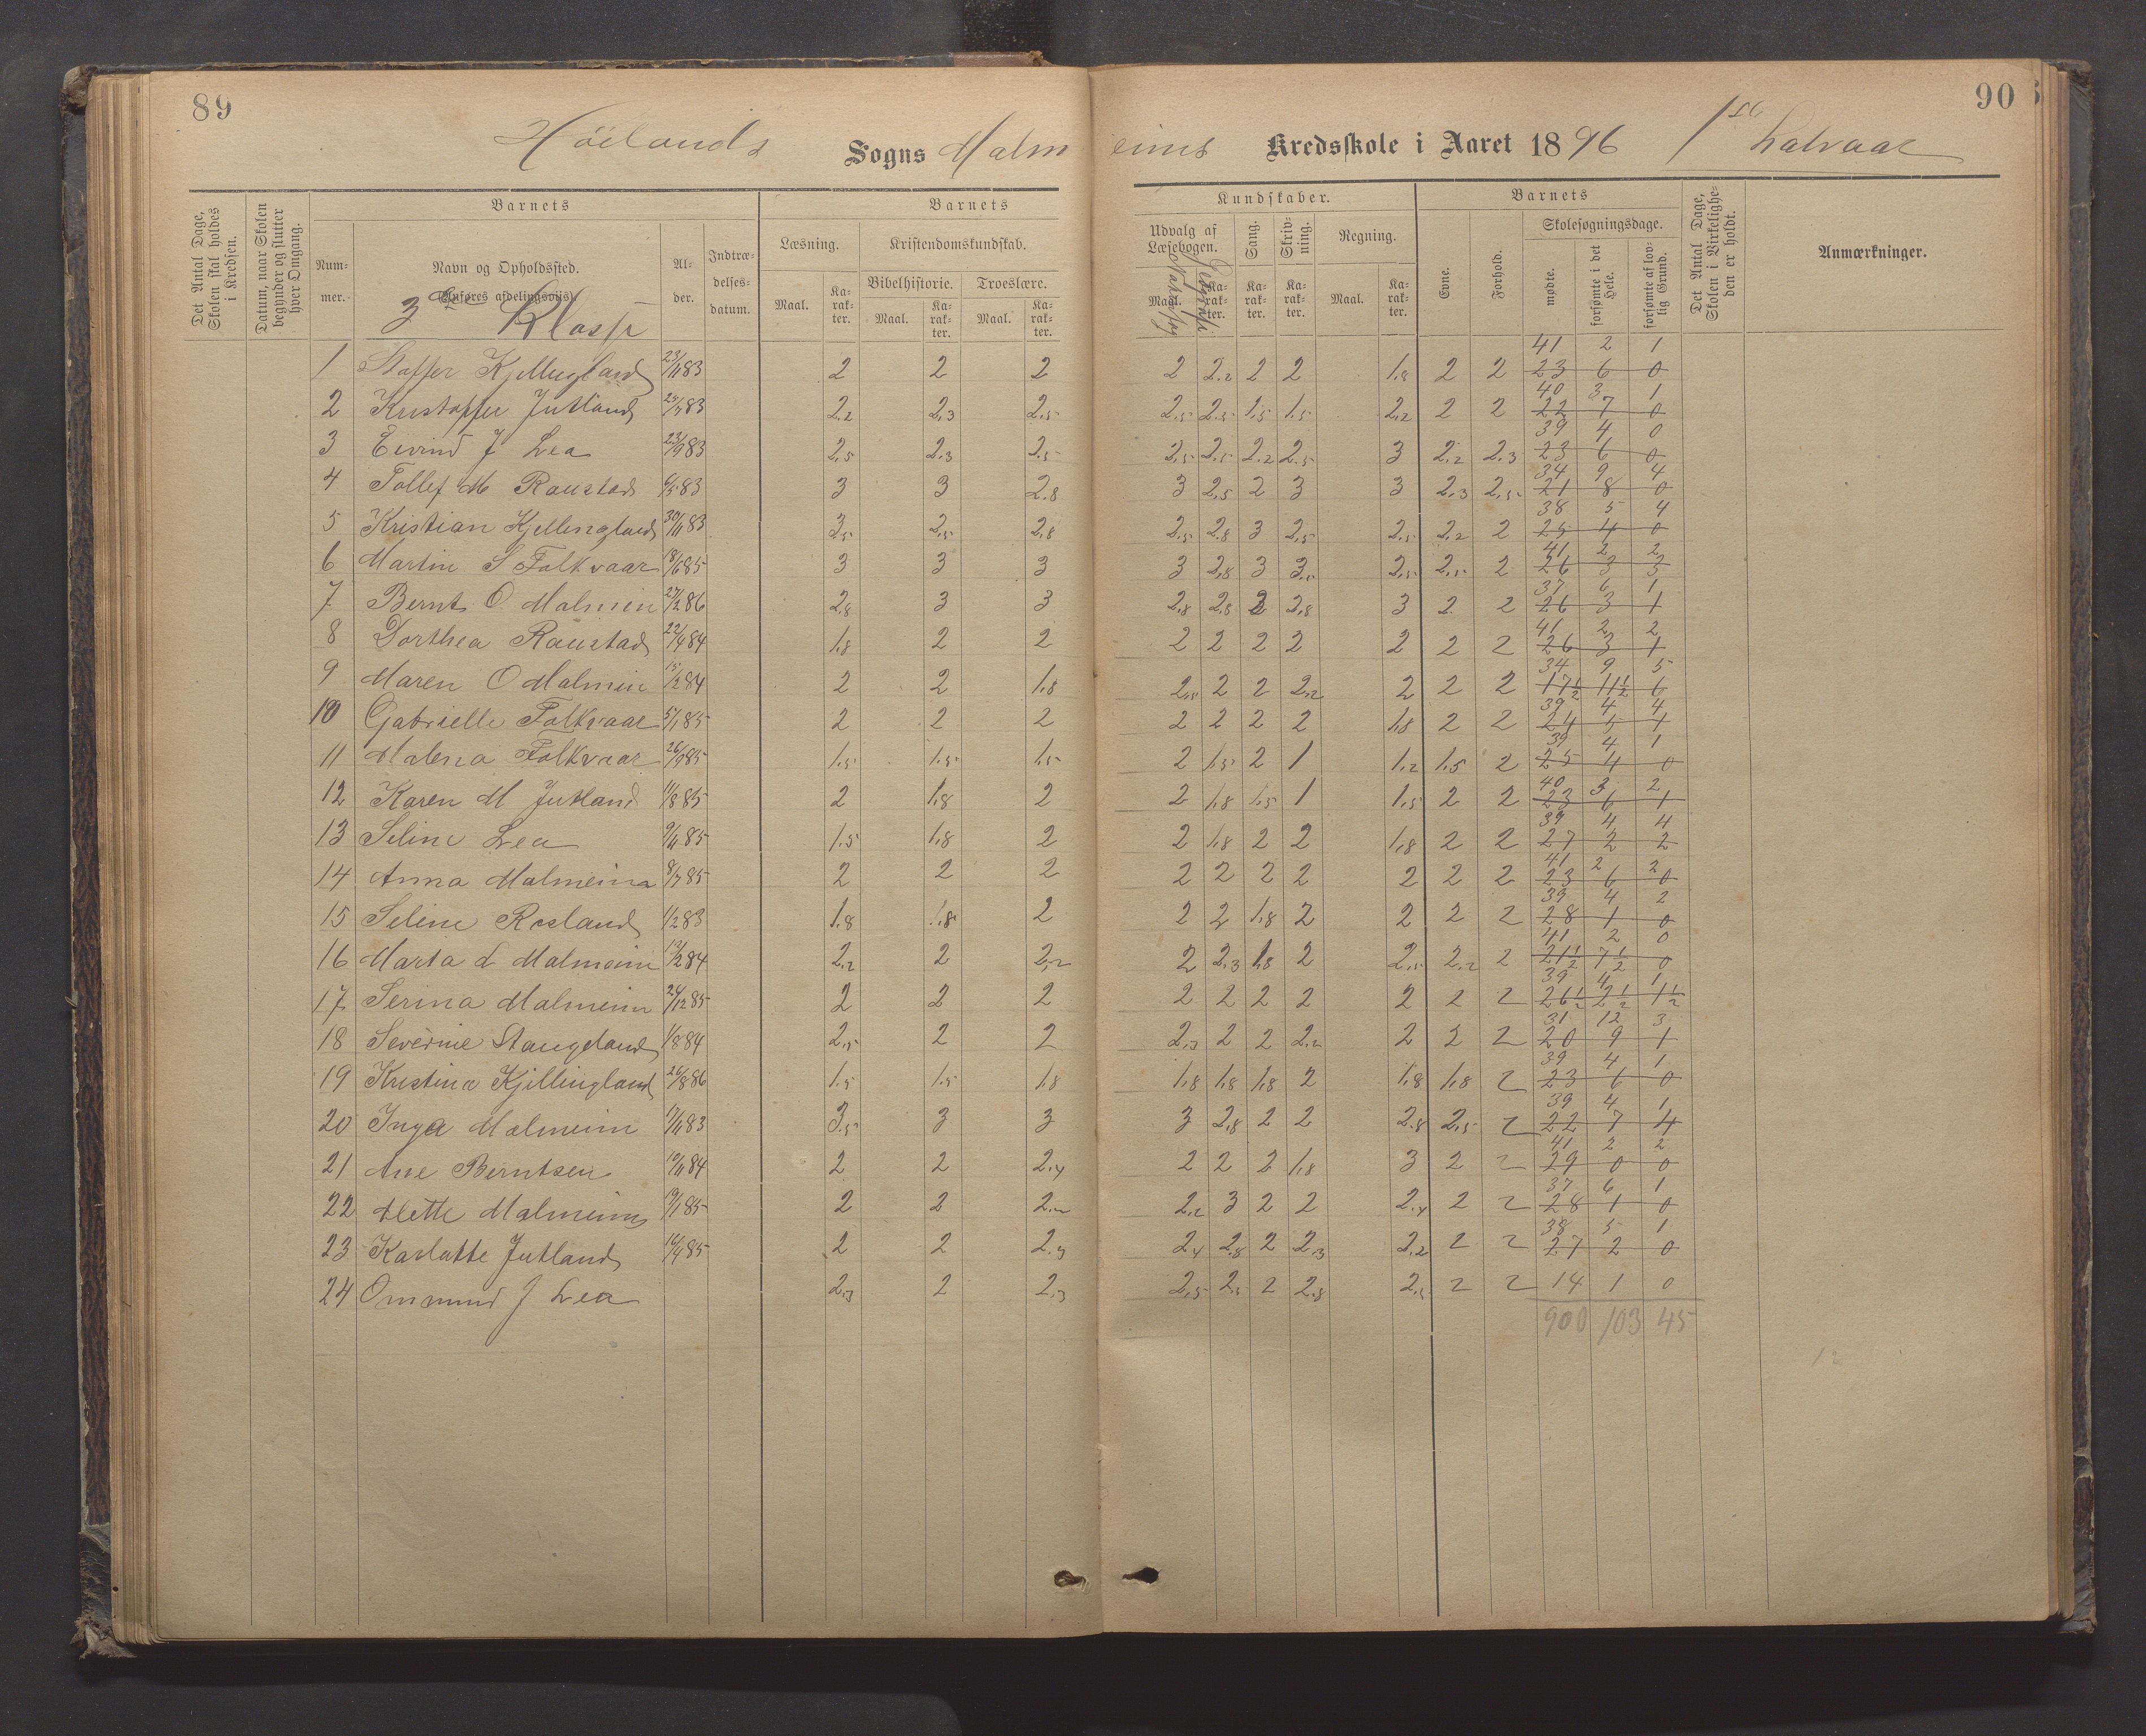 89
90
Höilands Sogns Malmeims Kredsskole i Aaret 1896 1ste halvaar
Det Antal Dage, Skolen skal holdes i Kredsen.
Datum, naar Skolen begynder og slutter hver Omgang.
Barnets
Barnets
Kundskaber.
Barnets
Det Antal Dage, Skolen i Virkeligheden er holdt.
Anmærkninger.
Nummer.
Navn og Opholdssted.
(Anføres afdelingsvis).
3die Klasse
Alder.
Indtrædelsesdatum.
Læsning.
Kristendomskundskab.
Bibelhistorie.
Troeslære.
Udvalg af Læsebogen.
Sang.
Skrivning.
Regning.
Evne.
Forhold.
Skolesøgningsdage.
mødte.
forsømte i det Hele.
forsømte af lovlig Grund.
Maal. Karakter. Maal. Karakter. Maal. Karakter. Maal. Karakter. Karakter. Karakter. Maal. Karakter.
41 2 1
1 Staffer Kjellingland 23/11 83 2 2 2 2 2.2 2 2 1.8 2 2 23 6 0
40 3 1
2 Kristoffer Jutland 25/7 83 2.2 2.3 2.5 2.5 2.5 1.5 1.5 2.2 2 2 22 7 0
39 4 0
3 Eivind J Lea 23/9 83 2.5 2.3 2.5 2.5 2.5 2.2 2.5 3 2.2 2.3 23 6 0
34 9 4
4 Tollef M Raustad 6/5 83 3 3 2.8 3 2.5 2 3 3 2.3 2.5 21 8 0
38 5 4
5 Kristian Kjellingland 30/11 83 3.5 2.5 2.8 2.5 2.8 3 2.5 2.5 2.2 2 25 4 0
41 2 2
6 Martin S Folkvaar 18/6 85 3 3 3 3 2.8 3 3.5 2.5 2.5 2 26 3 3
37 6 1
7 Bernt O Malmin 27/2 86 2.8 3 3 2.8 2.8 3 2.8 3 2 2 26 3 1
41 2 2
8 Dorthea Raustad 22/4 84 1.8 2 2 2 2 2 2 2 2 2 26 3 1
34 9 5
9 Maren O Malmin 15/2 84 2 2 1.8 2.5 2 2 2.2 2 2 2 17 1/2 11 1/2 6
39 4 4
10 Gabrielle Folkvaar 5/1 85 2 2 2 2 2 2 2 1.8 2 2 24 5 4
39 4 1
11 Malena Folkvaar 26/9 85 1.5 1.5 1.5 2 1.5 2 1 1.2 1.5 2 25 4 0
40 3 2
12 Karen M Jutland 11/8 85 2 1.8 2 2 1.8 1.5 1 1.5 2 2 23 6 1
39 4 4
13 Seline Lea 9/11 85 1.5 1.8 2 2 1.8 2 2 1.8 2 2 27 2 2
41 2 2
14 Anna Malmeina 8/7 85 2 2 2 2 2 2 2 2 2 2 23 6 0
39 4 2
15 Seline Rosland 1/2 83 1.8 1.8 2 2 2 1.8 2 2 2 2 28 1 0
41 2 0
16 Marta L Malmeim 12/2 84 2.2 2 2.2 2 2.3 1.8 2 2.5 2.2 2 21 1/2 7 1/2 0
39 4 1
17 Serina Malmeim 24/12 85 2 2 2 2 2 2 2 2 2 2 26 1/2 2 1/2 1 1/2
31 12 3
18 Severine Stangeland 1/8 84 2.5 2 2 2.3 2 2 2.2 2 2 2 20 9 1
39 4 1
19 Kristina Kjellingland 26/8 86 1.5 1.5 1.8 1.8 1.8 1.8 2 1.8 1.8 2 23 6 0
39 4 1
20 Inga Malmeim 17/11 83 3.5 3 3 3 2.8 2 2 2.8 2.5 2 22 7 4
41 2 2
21 Ane Berntsen 19/11 84 2 2 2.4 2 2 2 1.8 3 2 2 29 0 0
37 6 1
22 Mette Malmeim 19/1 85 2 2 2.2 2.2 3 2 2 2.4 2 2 28 1 0
38 5 1
23 Karlatte Jutland 16/4 85 2 2 2.3 2.4 2.8 2 2.3 2.2 2 2 27 2 0
24 Ommund J Lea 2.3 2 2.3 2.5 2.5 2 2.8 2.5 2 2 14 1 0
900 103 45